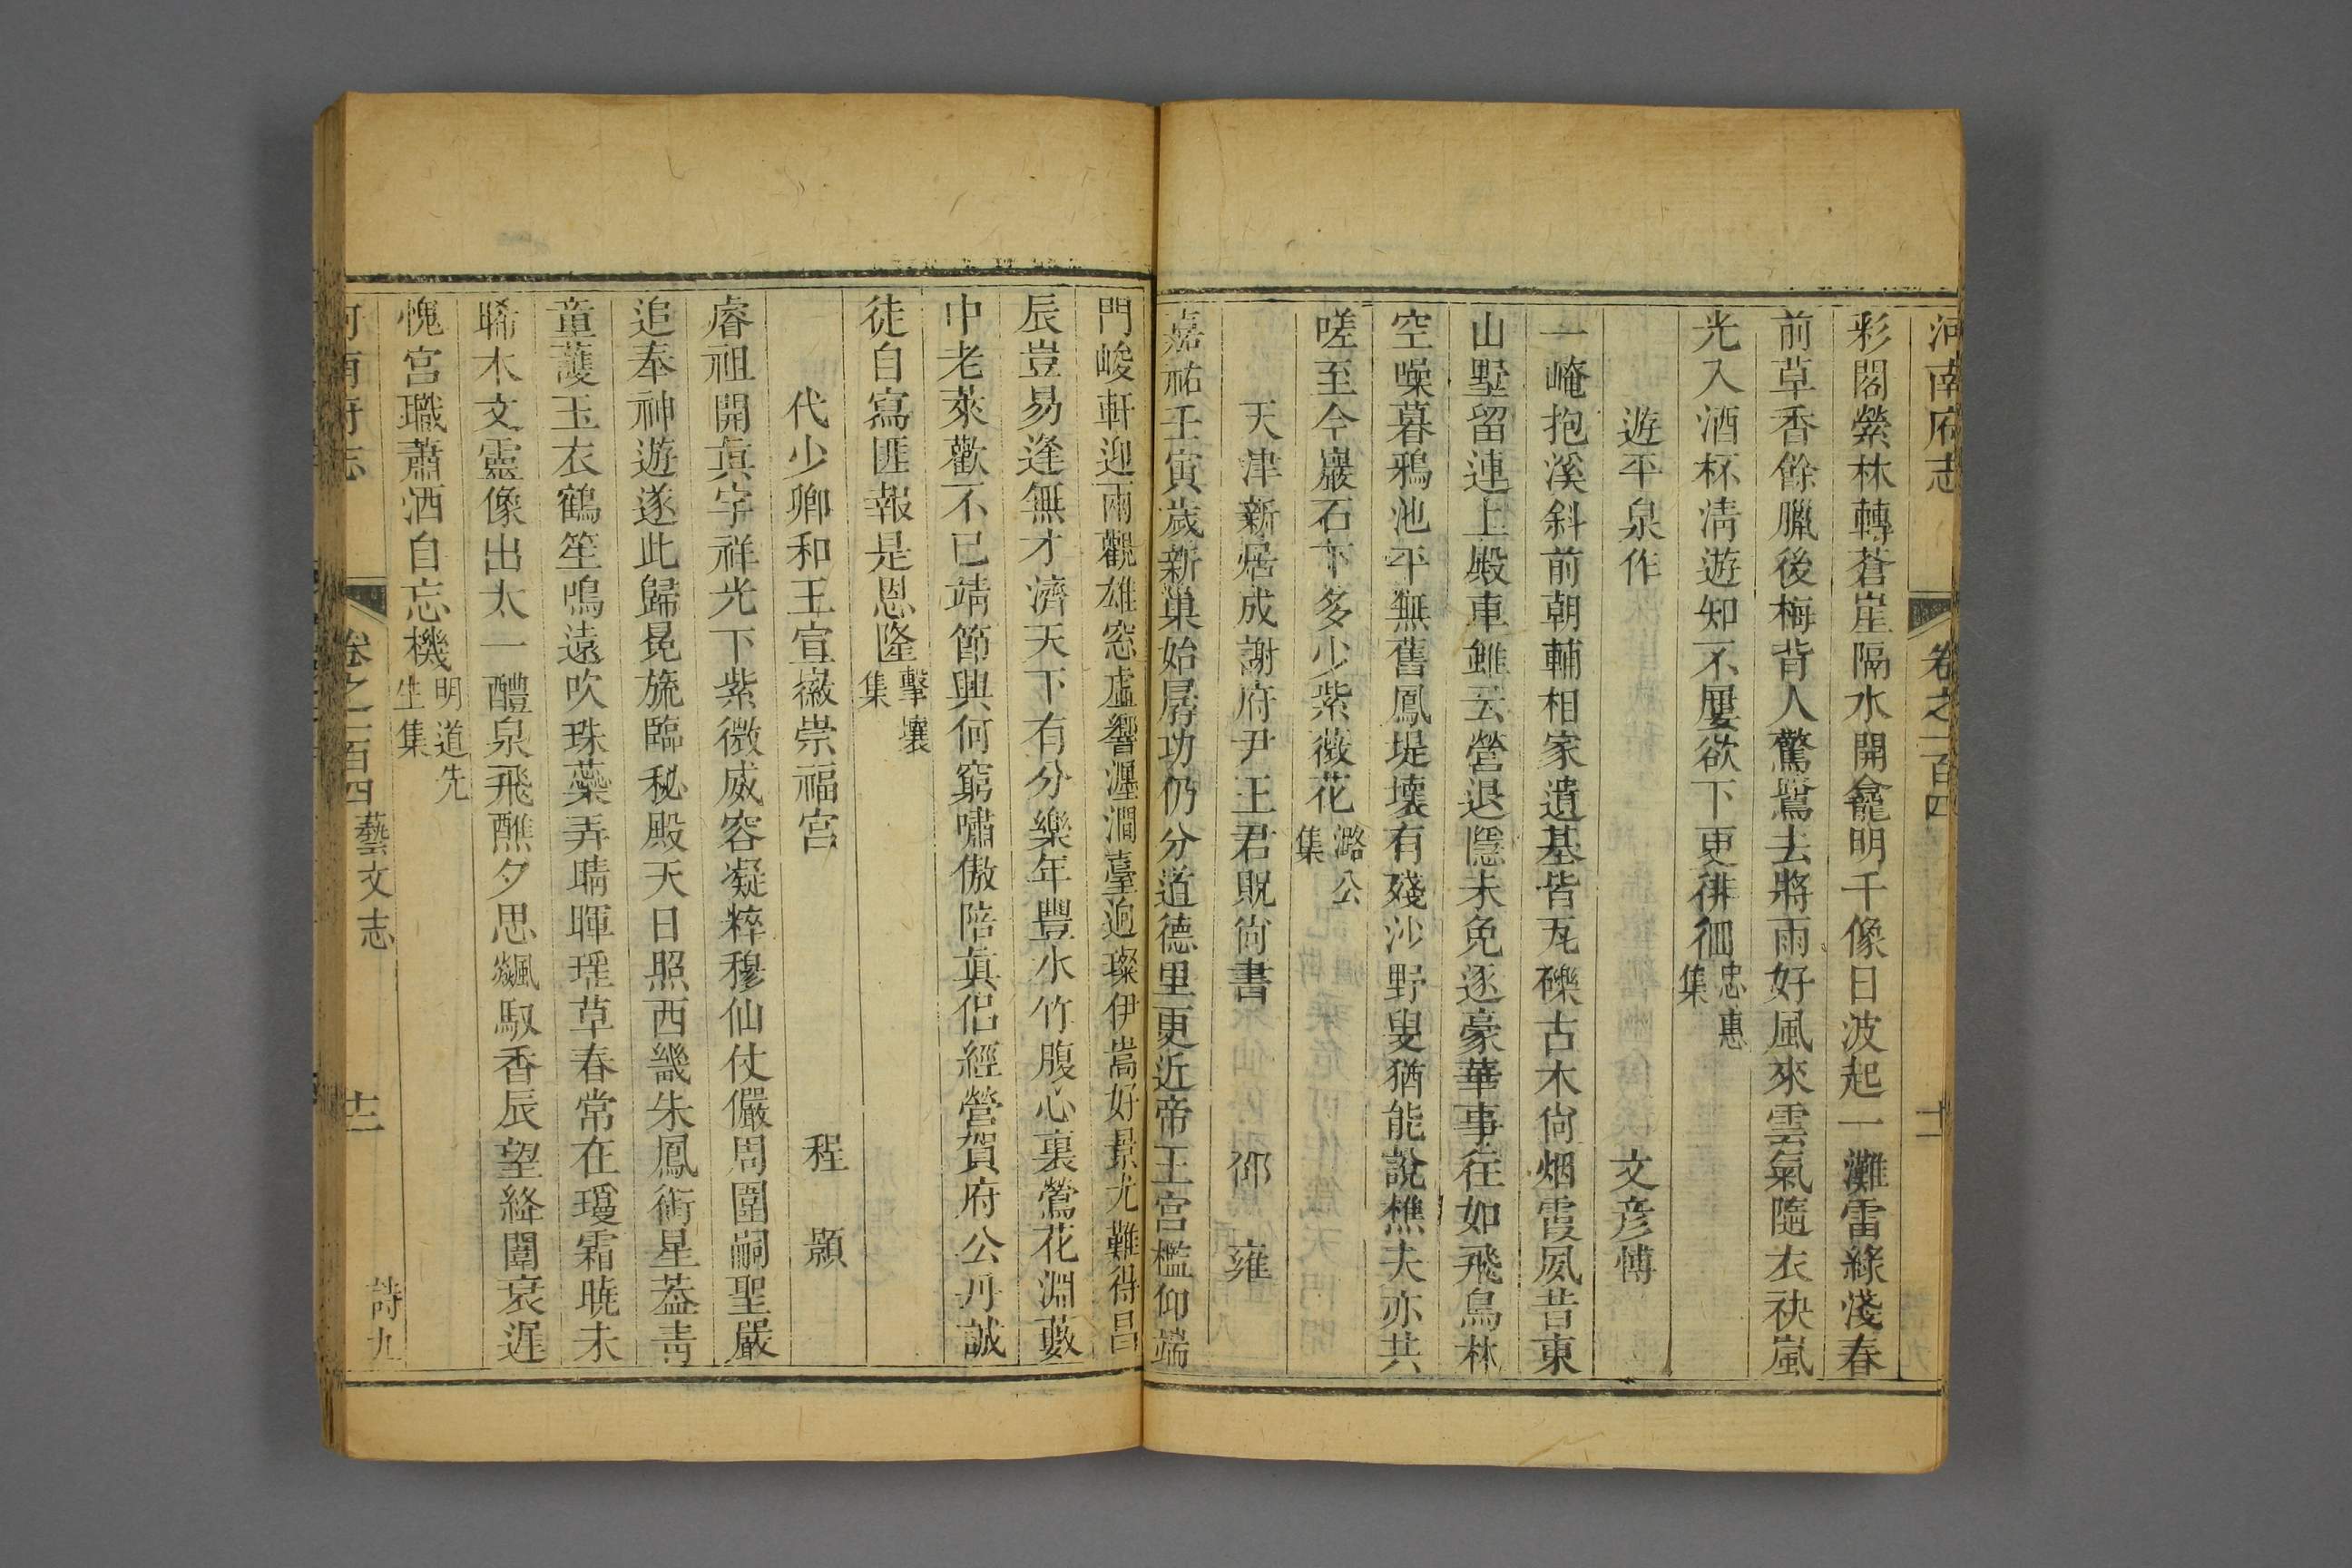 河南府志 卷之一百四
彩閣縈林轉蒼崖隔水開龕明千像日波起一灘雷綠淺春
前草香餘臘後梅背人驚鷺去將雨好風來雲氣隨衣袂嵐
光入酒杯淸遊知不屢欲下更徘徊忠惠集
遊平泉作 文彦博
一崦抱溪斜前朝輔相家遺基皆瓦礫古木尙烟霞夙昔東
山墅留連上殿車雖云營退隱未免逐豪華事往如飛鳥林
空噪暮鴉池平無舊鳳堤壞有殘沙野叟猶能說樵夫亦共
嗟至今巖石下多少紫薇花潞公集
天津新居成謝府尹王君貺尙書 邵雍
嘉祐壬寅歲新巢始孱功仍分道德里更近帝王宫檻仰端
門峻軒迎兩觀雄窓虛響瀍澗臺迥璨伊嵩好景尤難得昌
辰豈易逢無才濟天下有分樂年豐水竹腹心裏鶯花淵藪
中老萊歡不已靖節興何窮嘯傲陪眞侣經營賀府公丹誠
徒自寫匪報是恩隆擊壤集
代少卿和王宣徽崇福宫 程顥
睿祖開眞宇祥光下紫微威容凝粹穆仙仗儼周圍嗣聖嚴
追奉神遊遂此歸晃旒臨秘殿天日照西畿朱鳳銜星葢靑
童護玉衣鶴笙鳴遠吹珠蘂弄晴暉瑤草春常在瓊霜曉未
晞木文靈像出太一醴泉飛醮夕思飈馭香辰望絳闈衰遲
愧宫職蕭洒自忘機明道先生集
河南府志 卷之一百四 藝文志 十二 詩九